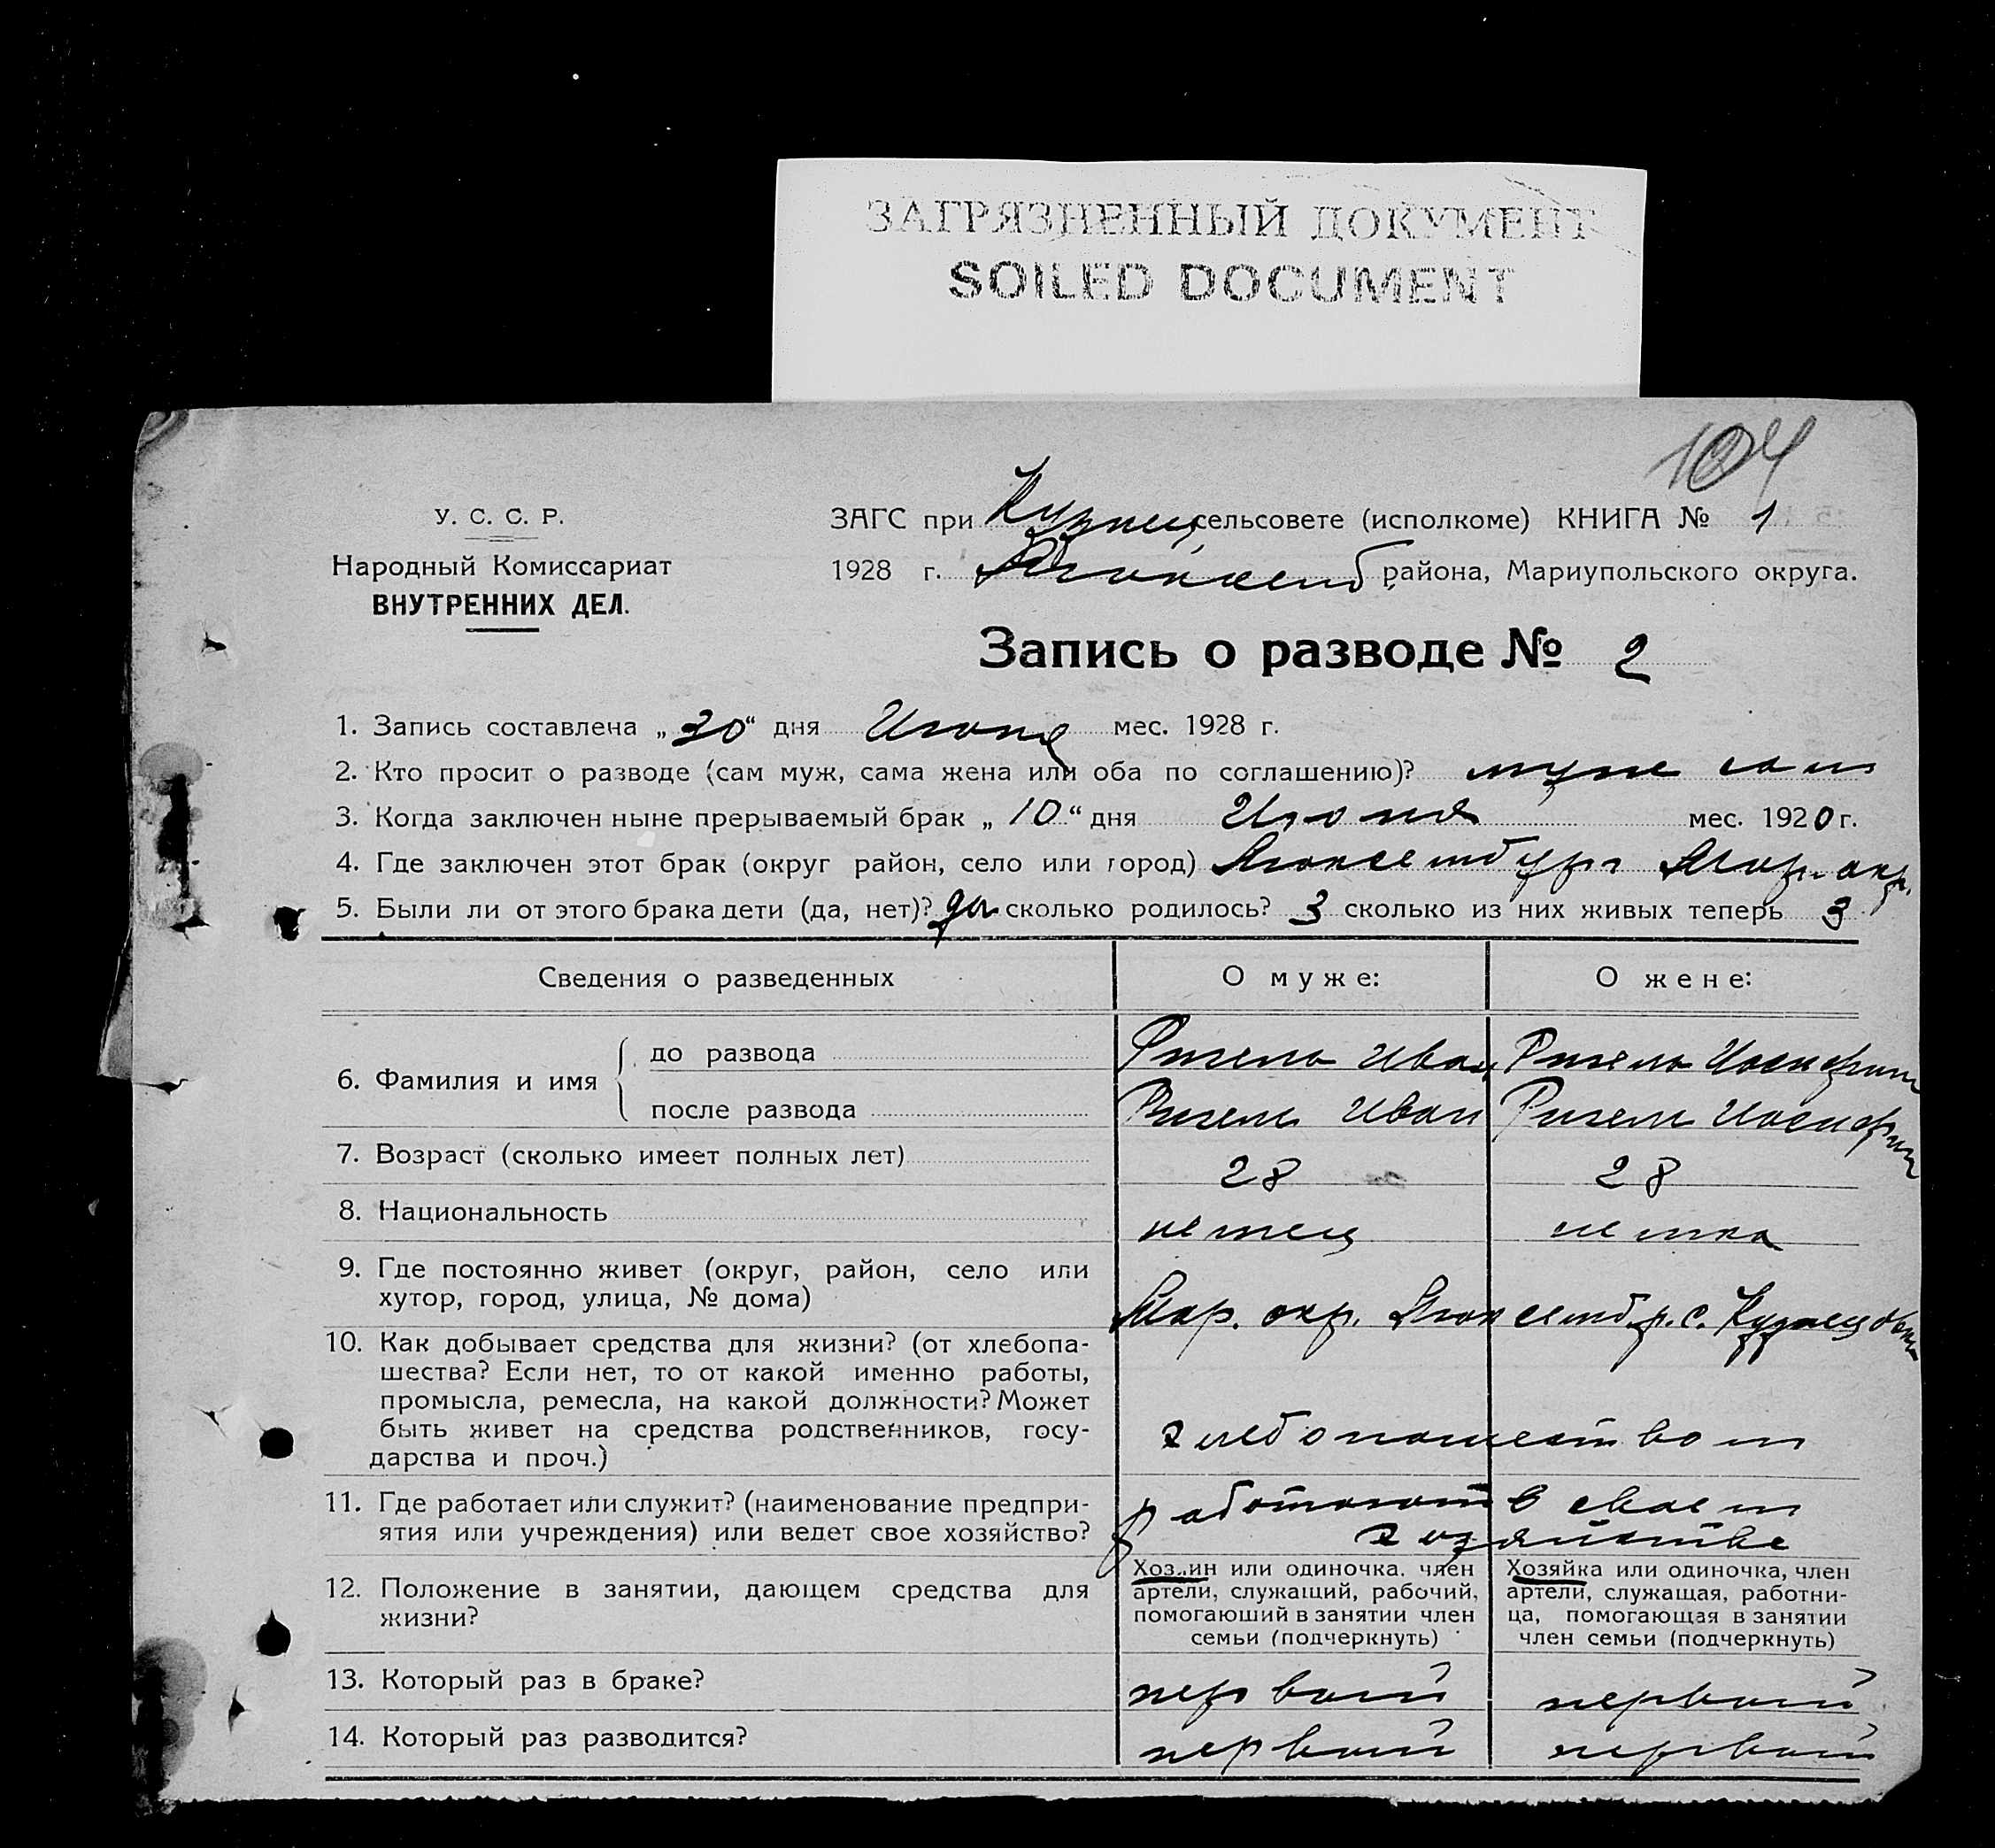 ЗАГРЯЗНЕННЫЙ ДОКУМЕНТ
SOILED DOCUMENT
104
У. С. С. Р.
Народный Комиссариат
ВНУТРЕННИХ ДЕЛ.
ЗАГС при Кузнец. сельсовете (исполкоме) КНИГА № 1
1928 г. Люксемб. района, Мариупольского округа.
Запись о разводе № 2
1. Запись составлена „30“ дня Июня мес. 1928 г.
2. Кто просит о разводе (сам муж, сама жена или оба по соглашению)? муж сам
3. Когда заключен ныне прерываемый брак „10“ дня Июня мес. 1920 г.
4. Где заключен этот брак (округ район, село или город) Люксембург Мар. окр.
5. Были ли от этого брака дети (да, нет)? да сколько родилось? 3 сколько из них живых теперь 3
Сведения о разведенных О муже: О жене:
6. Фамилия и имя
до развода Ригель Иван Ригель Иосифина
после развода Ригель Иван Ригель Иосифина
7. Возраст (сколько имеет полных лет) 28 28
8. Национальность немец немка
9. Где постоянно живет (округ, район, село или
хутор, город, улица, № дома) Мар. окр. Люксемб. р. с. Кузнецовка
10. Как добывает средства для жизни? (от хлебопа-
шества? Если нет, то от какой именно работы,
промысла, ремесла, на какой должности? Может
быть живет на средства родственников, госу-
дарства и проч.) хлебопашеством
11. Где работает или служит? (наименование предпри-
ятия или учреждения) или ведет свое хозяйство?
работают в своем
хозяйстве
12. Положение в занятии, дающем средства для
жизни?
Хоз..ин или одиночка. член
артели, служащий, рабочий,
помогающий в занятии член
семьи (подчеркнуть)
Хозяйка или одиночка, член
артели, служащая, работни-
ца, помогающая в занятии
член семьи (подчеркнуть)
13. Который раз в браке? первый первый
14. Который раз разводится? первый первый